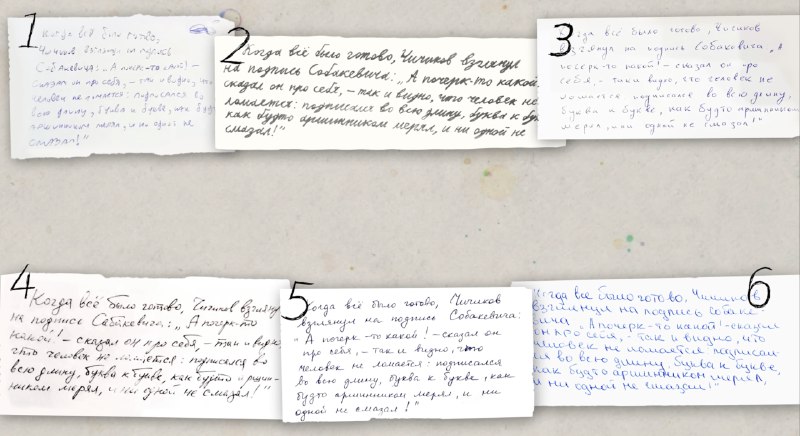 1
Когда всё было готово,
Чичиков взглянул на подпись
Собакевича: „А почерк-то какой! –
сказал он про себя, – так и видно, что
человек не ломается: подписался во
всю длину, буква к букве, как будто
аршинником мерял, и ни одной не
смазал!"
2
Когда всё было готово, Чичиков взглянул
на подпись Собакевича: „А почерк-то какой
сказал он про себя, – так и видно, что человек не
ломается: подписался во всю длину, буква к бук
как будто аршинником мерял, и ни одной не
смазал!"
3
гда всё было готово, Чичиков
взглянул на подпись Собакевича „А
почерк-то какой! – сказал он про
себя, – так и видно, что человек не
ломается подписался во всю длину,
буква к букве, как будто аршинником
мерял, и ни одной не смазал!"
4
Когда всё было готово, Чичиков взглянул
на подпись Собакевича: „А почерк-то
какой! – сказал он про себя, – так и видно
что человек не ломается: подписался во
всю длину, буква к букве, как будто аршин-
ником мерял, и ни одной не смазал!"
5
Когда всё было готово, Чичиков
взглянул на подпись Собакевича:
"А почерк-то какой! – сказал он
про себя, – так и видно, что
человек не ломается: подписался
во всю длину, буква к букве, как
будто аршинником мерял, и ни
одной не смазал!"
6
Когда всё было готово, Чичиков
взглянул на подпись Собаке-
вича „А почерк-то какой! – сказал
он про себя, – так и видно, что
человек не ломается: подписал-
ся во всю длину, буква к букве,
как будто аршинником мерял,
и ни одной не смазал!"